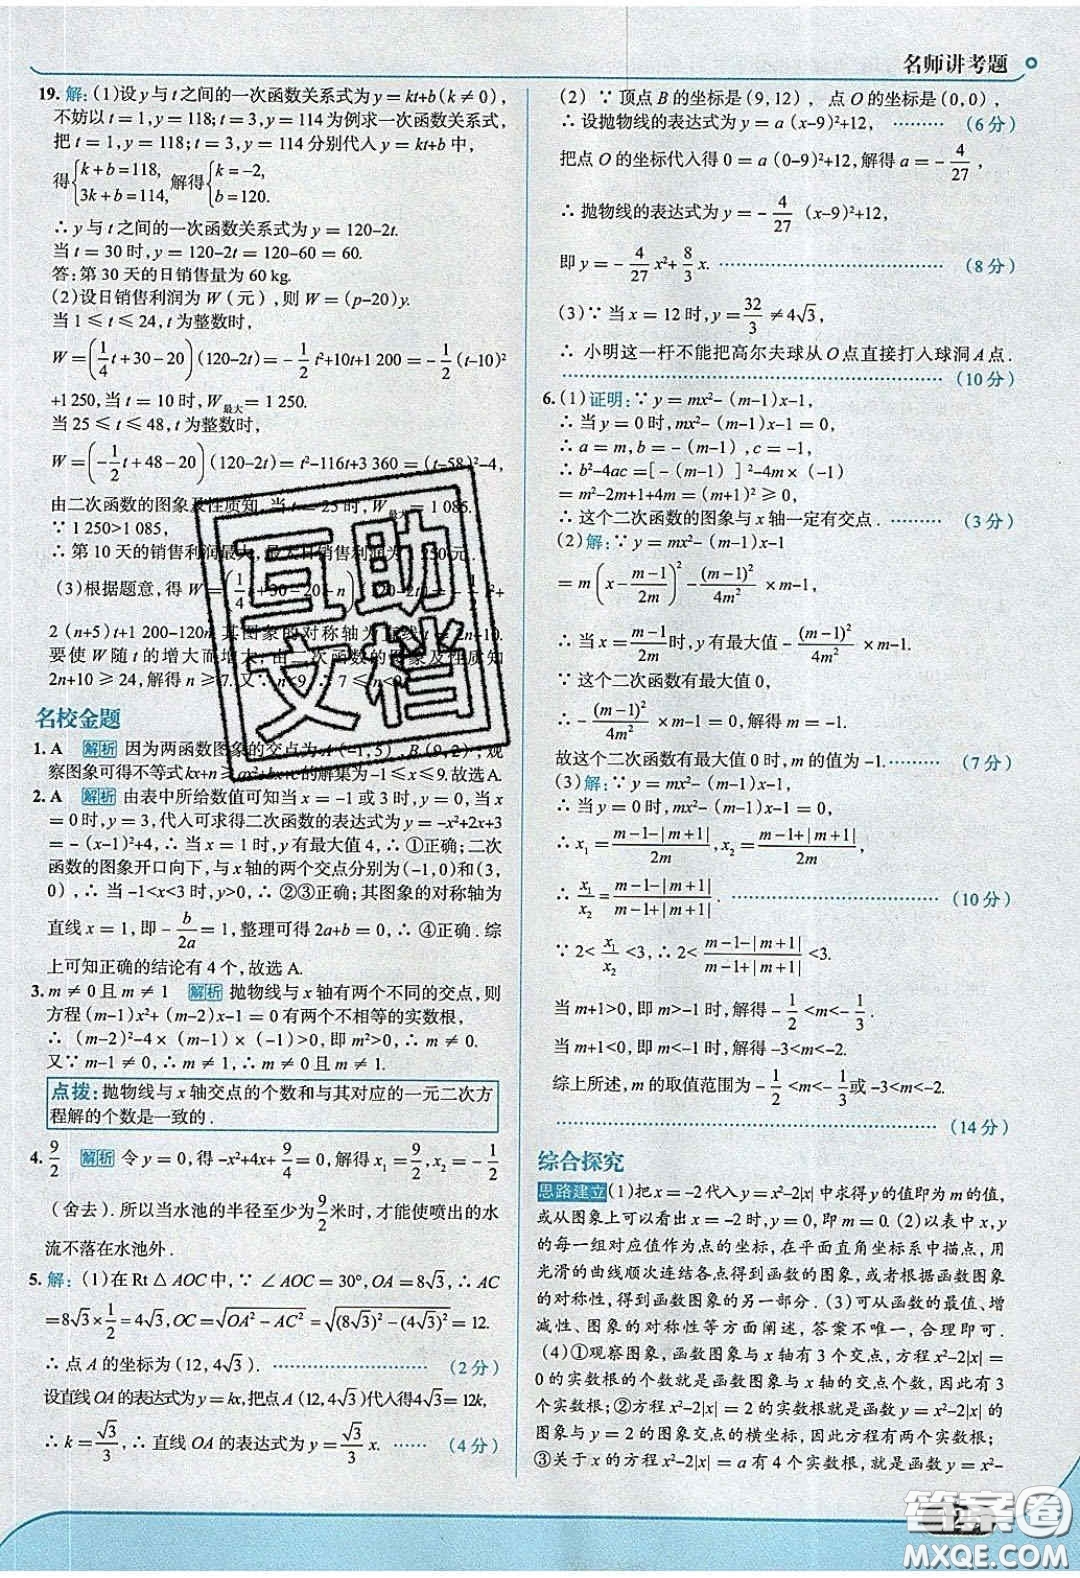 名师讲考题
19. 解：(1)设 y 与 t 之间的一次函数关系式为 y = kt+b(k ≠ 0),
不妨以 t = 1, y = 118; t = 3, y = 114 为例求一次函数关系式,
把 t = 1, y = 118; t = 3, y = 114 分别代入 y = kt+b 中,
得 {k + b = 118, 3k + b = 114, 解得 {k = -2, b = 120.
∴ y 与 t 之间的一次函数关系式为 y = 120-2t.
当 t = 30 时, y = 120-2t = 120-60 = 60.
答: 第 30 天的日销售量为 60 kg.
(2)设日销售利润为 W (元), 则 W = (p-20)y.
当 1 ≤ t ≤ 24, t 为整数时,
W = (1/4 t+30-20)(120-2t) = -1/2 t²+10t+1 200 = -1/2 (t-10)²
+1 250, 当 t = 10 时, W最大 = 1 250.
当 25 ≤ t ≤ 48, t 为整数时,
W = (-1/2 t+48-20)(120-2t) = t²-116t+3 360 = (t-58)²-4,
由二次函数的图象及性质知, 当 t = 25 时, W最大 = 1 085.
∵ 1 250>1 085,
∴ 第 10 天的销售利润最大, 最大日销售利润为 1 250 元.
(3)根据题意, 得 W = (1/4 t+30-20-n)(120-2t) = -1/2 t²+
2 (n+5)t+1 200-120n, 其图象的对称轴为直线 t = 2n+10.
要使 W 随 t 的增大而增大, 由二次函数的图象及性质知
2n+10 ≥ 24, 解得 n ≥ 7. 又∵ n<9, ∴ 7 ≤ n<9.
名校金题
1. A 解析 因为两函数图象的交点为 A (-1, 5), B (9, 2), 观
察图象可得不等式kx+n ≥ ax²+bx+c的解集为-1 ≤ x ≤ 9.故选A.
2. A 解析 由表中所给数值可知当 x = -1 或 3 时, y = 0, 当 x
= 0 时, y = 3, 代入可求得二次函数的表达式为 y = -x²+2x+3
= - (x-1)²+4, ∴ 当 x = 1 时, y 有最大值 4, ∴ ①正确; 二次
函数的图象开口向下, 与 x 轴的两个交点分别为(-1, 0)和(3,
0) , ∴ 当 -1<x<3 时, y>0, ∴ ②③正确; 其图象的对称轴为
直线 x = 1, 即 - b/2a = 1, 整理可得 2a+b = 0, ∴ ④正确. 综
上可知正确的结论有 4 个, 故选 A.
3. m ≠ 0 且 m ≠ 1 解析 抛物线与 x 轴有两个不同的交点, 则
方程 (m-1)x²+ (m-2)x-1 = 0 有两个不相等的实数根,
∴ (m-2)²-4× (m-1) × (-1)>0, 即 m²>0, ∴ m ≠ 0.
又∵ m-1 ≠ 0, ∴ m ≠ 1.
点拨: 抛物线与 x 轴交点的个数和与其对应的一元二次方
程解的个数是一致的 .
4. 9/2 解析 令 y = 0, 得 -x²+4x+ 9/4 = 0, 解得 x₁ = 9/2, x₂ = - 1/2
(舍去) . 所以当水池的半径至少为 9/2 米时, 才能使喷出的水
流不落在水池外 .
5. 解: (1)在 Rt △ AOC 中, ∵ ∠ AOC = 30°, OA = 8√3, ∴ AC
= 8√3 × 1/2 = 4√3, OC = √(OA² - AC²) = √((8√3)² - (4√3)²) = 12.
∴ 点 A 的坐标为 (12, 4√3) . ……………… (2 分)
设直线 OA 的表达式为 y = kx, 把点 A (12, 4√3)代入得4√3 = 12k,
∴ k = √3/3, ∴ 直线 OA 的表达式为 y = √3/3 x. …… (4 分)
(2) ∵ 顶点 B 的坐标是 (9, 12) , 点 O 的坐标是 (0, 0) ,
∴ 设抛物线的表达式为 y = a (x-9)²+12, ……… (6 分)
把点 O 的坐标代入得 0 = a (0-9)²+12, 解得 a = - 4/27 ,
∴ 抛物线的表达式为 y = - 4/27 (x-9)²+12,
即 y = - 4/27 x²+ 8/3 x. ……………………… (8 分)
(3) ∵ 当 x = 12 时, y = 32/3 ≠ 4√3,
∴ 小明这一杆不能把高尔夫球从 O 点直接打入球洞 A 点.
……………………………………… (10 分)
6. (1) 证明: ∵ y = mx²- (m-1)x-1,
∴ 当 y = 0 时, mx²- (m-1)x-1 = 0,
∴ a = m, b = - (m-1) , c = -1,
∴ b²-4ac = [- (m-1) ]²-4m× (-1)
= m²-2m+1+4m = (m+1)² ≥ 0,
∴ 这个二次函数的图象与 x 轴一定有交点 . ……… (3 分)
(2)解: ∵ y = mx²- (m-1)x-1
= m (x - (m-1)/2m)² - (m-1)²/4m² ×m-1,
∴ 当 x = (m-1)/2m 时, y 有最大值 - (m-1)²/4m² ×m-1,
∵ 这个二次函数有最大值 0,
∴ - (m-1)²/4m² ×m-1 = 0, 解得 m = -1.
故这个二次函数有最大值 0 时, m 的值为 -1. ……… (7 分)
(3)解: ∵ 当 y = 0 时, mx²- (m-1)x-1 = 0,
∴ x₁ = (m-1-|m+1|)/2m, x₂ = (m-1+|m+1|)/2m,
∴ x₁/x₂ = (m-1-|m+1|)/(m-1+|m+1|) . …………………… (10 分)
∵ 2< x₁/x₂ <3, ∴ 2< (m-1-|m+1|)/(m-1+|m+1|) <3.
当 m+1>0, 即 m>-1 时, 解得 - 1/2 <m<- 1/3;
当 m+1<0, 即 m<-1 时, 解得 -3<m<-2.
综上所述, m 的取值范围为 - 1/2 <m<- 1/3 或 -3<m<-2.
……………………………………… (14 分)
综合探究
思路建立 (1)把 x = -2 代入 y = x²-2|x| 中求得 y 的值即为 m 的值,
或从图象上可以看出 x = -2 时, y = 0, 即 m = 0. (2)以表中 x, y
的每一组对应值作为点的坐标, 在平面直角坐标系中描点, 用
光滑的曲线顺次连结各点得到函数的图象, 或者根据函数图象
的对称性, 得到函数图象的另一部分 . (3)可从函数的最值、增
减性、图象的对称性等方面阐述, 答案不唯一, 合理即可 .
(4)①观察图象, 函数图象与 x 轴有 3 个交点, 方程 x²-2|x| =
0 的实数根的个数就是函数图象与 x 轴的交点个数, 因此有 3
个实数根; ②方程 x²-2|x| = 2 的实数根就是函数 y = x²-2|x| 的
图象与 y = 2 的图象交点的横坐标, 因此方程有两个实数根;
③关于 x 的方程 x²-2|x| = a 有 4 个实数根, 就是函数 y = x²-
互助
文档
答案圈
MXQE.COM